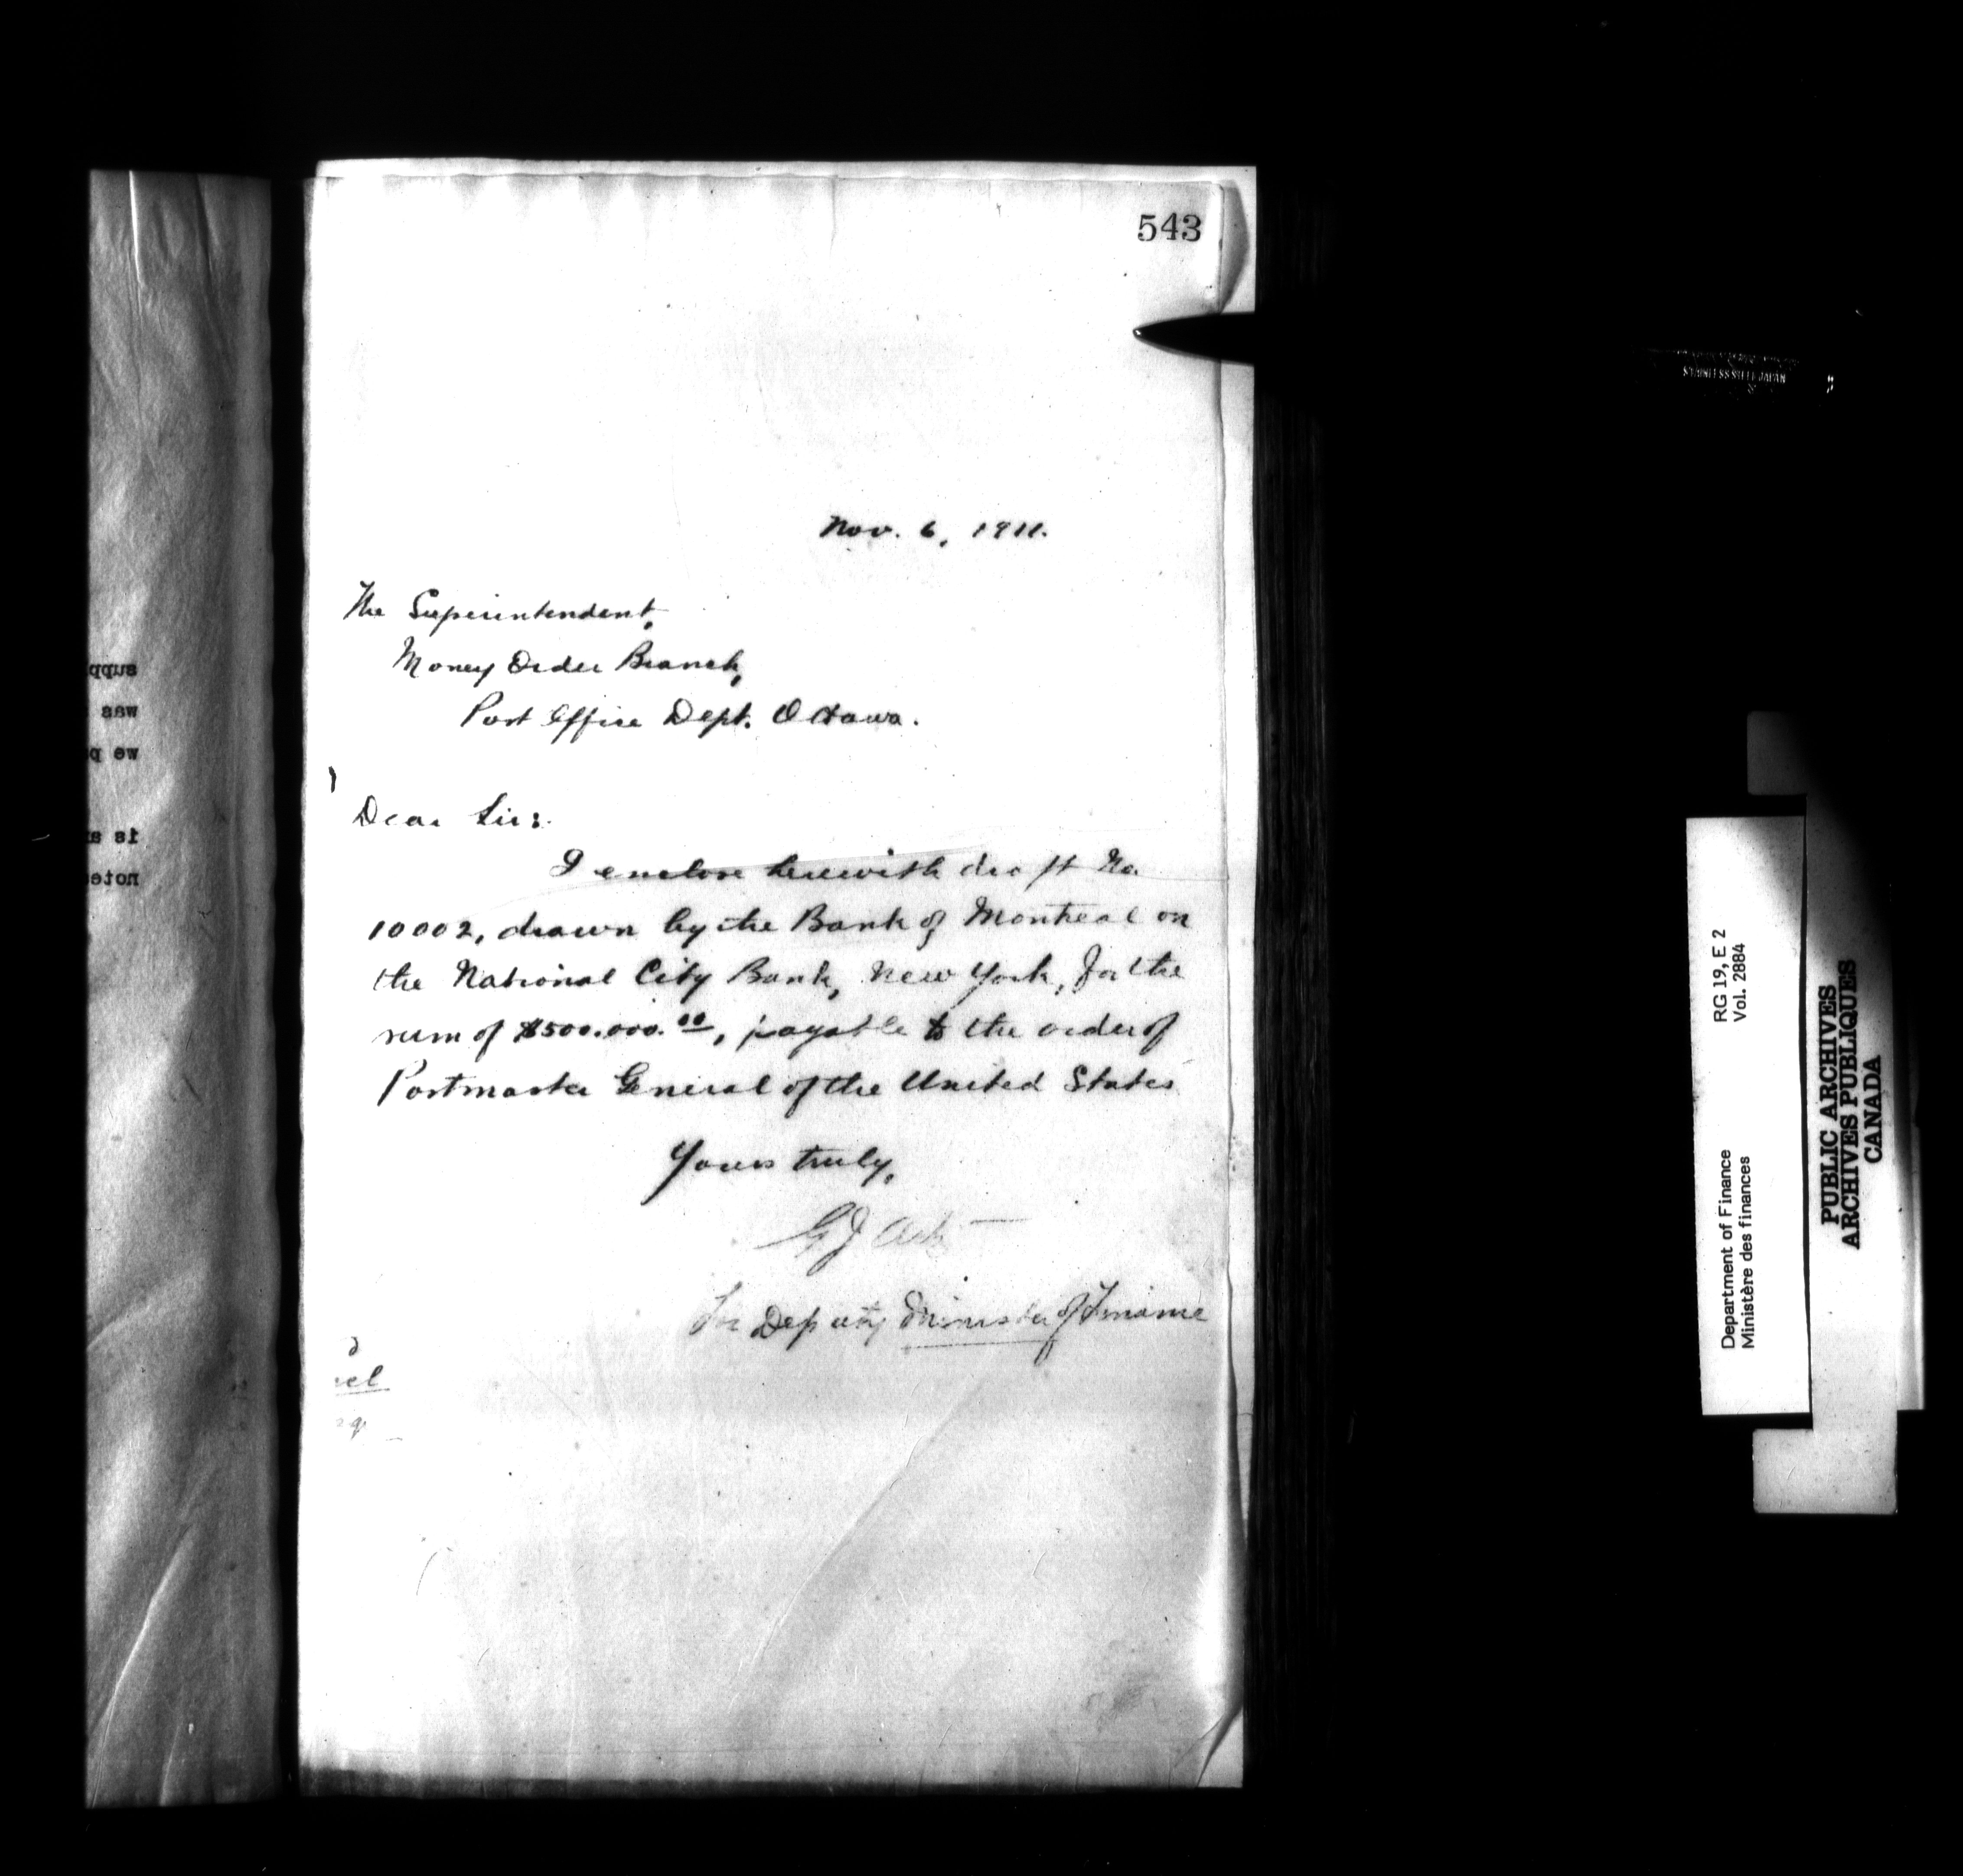 543
Nov. 6, 1911.
The Superintendent,
Money Order Branch,
Post Office Dept. Ottawa.
Dear Sir:
I enclose herewith draft No.
10002, drawn by the Bank of Montreal on
the National City Bank, New York, for the
sum of $500.000.00, payable to the order of
Postmaster General of the United States
Yours truly,
For Deputy Minister of Finance
supp
was
we p
is a
note
STAINLESS STEEL JAPAN
RG 19, E 2
Vol. 2884
Department of Finance
Ministère des finances
PUBLIC ARCHIVES
ARCHIVES PUBLIQUES
CANADA